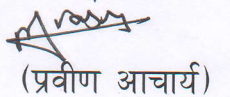 (प्रवीण आचार्य)